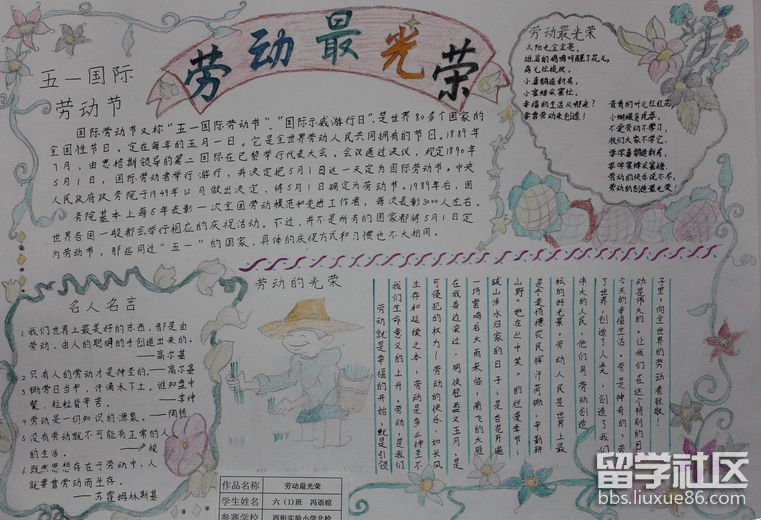 劳动最光荣
五一国际
劳动节
国际劳动节又称"五一国际劳动节"、"国际示威游行日",是世界80多个国家的
全国性节日。定在每年的五月一日。它是全世界劳动人民共同拥有的节日。1889年
7月,由恩格斯领导的第二国际在巴黎举行代表大会。会议通过决议,规定1890年
5月1日,国际劳动者举行游行,并决定把5月1日这一天定为国际劳动节。中央
人民政府政务院于1949年12月做出决定,将5月1日确定为劳动节。1989年后,国
务院基本上每5年表彰一次全国劳动模范和先进工作者,每次表彰3000人左右。
世界各国一般都会举行相应的庆祝活动。不过,并不是所有的国家都将5月1日定
为劳动节,那些同过"五一"的国家,具体的庆祝方式和习惯也不太相同。
劳动最光荣
太阳光金亮亮,
雄鸡唱三唱
花儿醒来了,
小喜鹊造新房,
小蜜蜂采蜜忙,
幸福的生活从哪里来?
要靠劳动来创造!
青青的叶儿红红花,
小蝴蝶贪玩耍,
不爱劳动不学习,
我们大家不学它,
要学喜鹊造新房,
要学蜜蜂采蜜糖,
劳动的快乐说不尽,
劳动的创造最光荣!
名人名言
1.我们世界上最美好的东西,都是由
劳动、由人的聪明的手创造出来的。
——高尔基
2.只有人的劳动才是神圣的——高尔基
3.锄禾日当午,汗滴禾下土。谁知盘中
餐,粒粒皆辛苦。——李绅
4.劳动是一切知识的源泉。——陶铸
5.没有劳动就不可能有正常的人
的生活。——卢梭
6.既然思想存在于劳动中,人
就要靠劳动而生存。
——苏霍姆林斯基
劳动的光荣
劳动就是幸福的开始,就是引领
我们生命意义的上升。劳动,是我们
生存和延续之本,劳动是多么神圣不
可侵犯的权力!劳动的快乐,如长风
在我身边穿过,明快轻盈又五月,是
一场雷鸣后大雨来临,南飞的大雁
跋山涉水归家的日子;是杏花开遍
山野,她在丛中笑的烂漫季节;
伟大的人民,他们用劳动创造
子里,向全世界的劳动者致敬!
作品名称 劳动最光荣
学生姓名 六(1)班 冯语暄
参赛学校 西街实验小学北校
留学社区
bbs.liuxue86.com